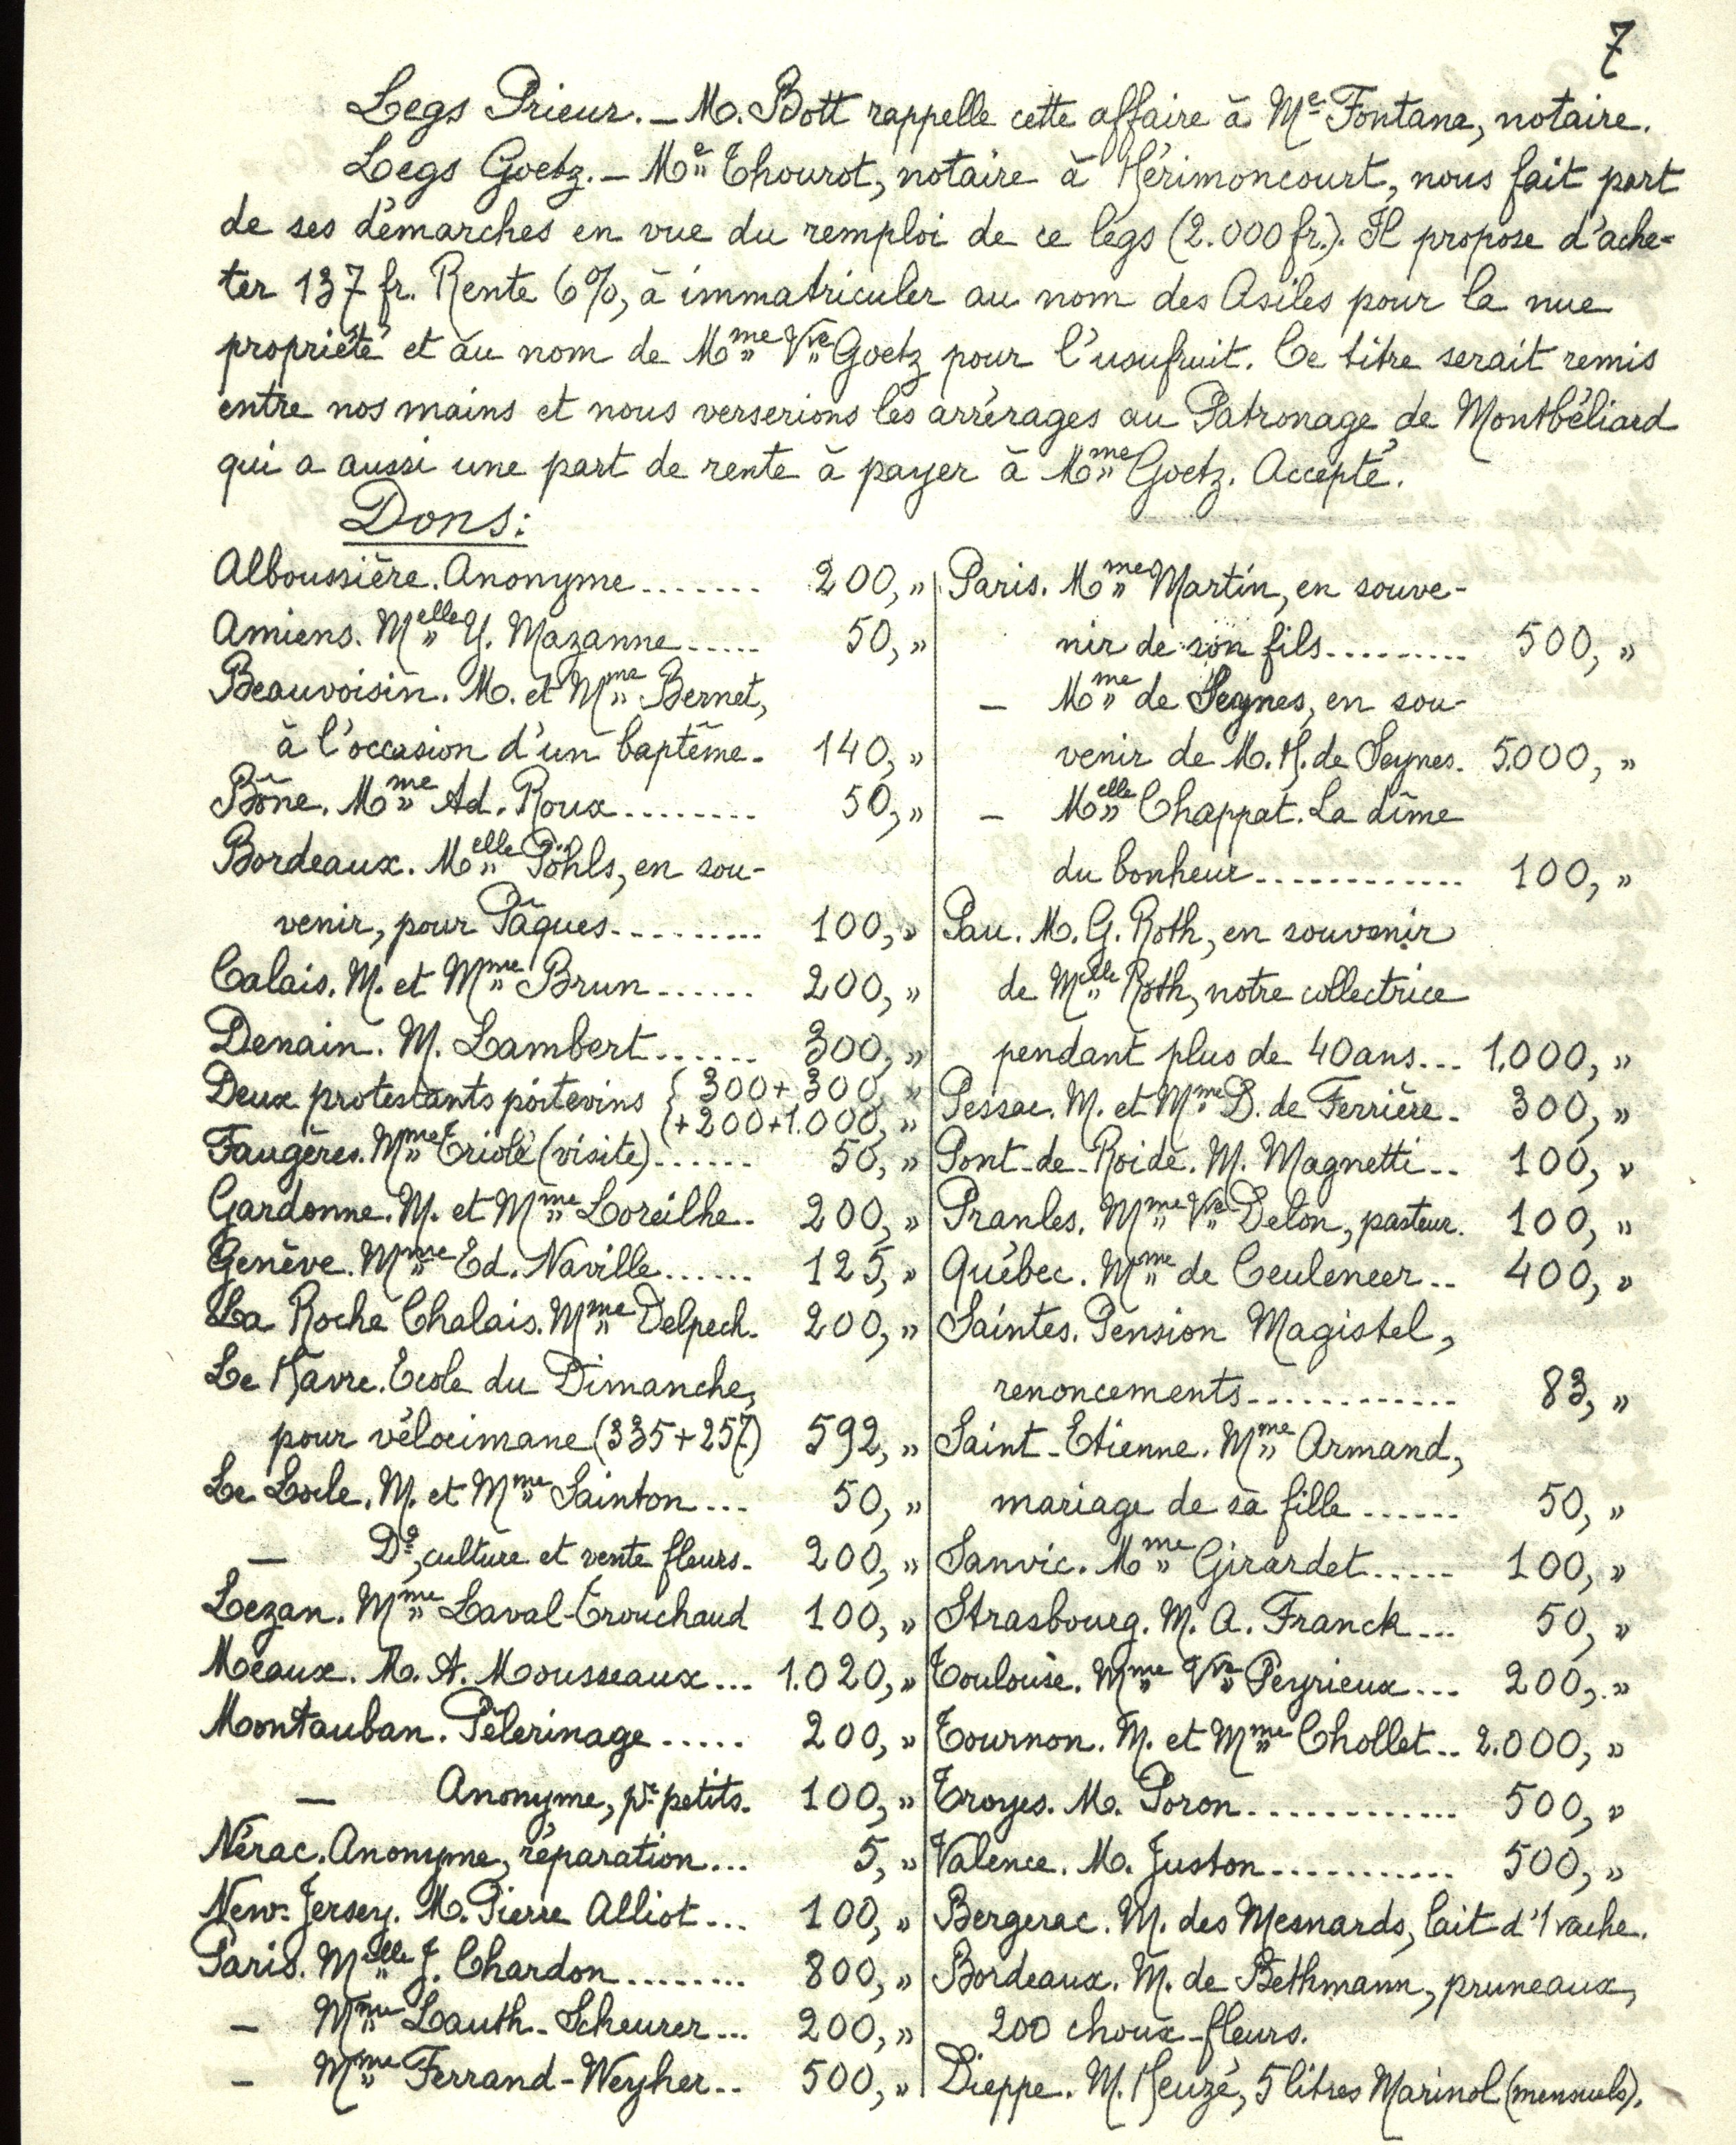 7
Legs Prieur. _ M. Bott rappelle cette affaire à Me Fontana, notaire.
Legs Goetz. _ Me Thourot, notaire à Hérimoncourt, nous fait part
de ses démarches en vue du remploi de ce legs (2.000 fr.). Il propose d'ache-
ter 137 fr. Rente 6%, à immatriculer au nom des Asiles pour la nue
propriété et au nom de Mme Vve Goetz pour l'usufruit. Ce titre serait remis
entre nos mains et nous verserions les arrérages au Patronage de Montbéliard
qui a aussi une part de rente à payer à Mme Goetz. Accepté.
Dons:
Alboussière. Anonyme....... 200, "
Amiens. Melle Y. Mazanne...... 50, "
Beauvoisin. M. et Mme Bernet,
à l'occasion d'un baptême. 140, "
Bône. Mme Ad. Roux........ 50, "
Bordeaux. Melle Pöhls, en sou-
venir, pour Pâques......... 100, "
Calais. M. et Mme Brun...... 200, "
Denain. M. Lambert....... 300, "
Deux protestants poitevins { 300 + 300, "
+ 200 + 1.000, "
Faugères. Mme Triolé (visite)...... 50, "
Gardonne. M. et Mme Loreilhe. 200, "
Genève. Mme Ed. Naville...... 125, "
La Roche Chalais. Mme Delpech. 200, "
Le Havre. Ecole du Dimanche,
pour vélocimane (335 + 257) 592, "
Le Locle. M. et Mme Sainton... 50, "
_ Do, culture et vente fleurs. 200, "
Lezan. Mme Laval-Trouchaud 100, "
Meaux. M. A. Mousseaux... 1.020, "
Montauban. Pélerinage..... 200, "
_ Anonyme, pr petits. 100, "
Nérac. Anonyme, réparation... 5, "
New-Jersey. M. Pierre Alliot... 100, "
Paris. Melle J. Chardon......... 800, "
_ Mme Lauth-Scheurer... 200, "
_ Mme Ferrand-Weyher.. 500, "
Paris. Mme Martin, en souve-
nir de son fils......... 500, "
_ Mme de Seynes, en sou-
venir de M. H. de Seynes. 5.000, "
_ Melle Chappat. La dîme
du bonheur............ 100, "
Pau. M. G. Roth, en souvenir
de Melle Roth, notre collectrice
pendant plus de 40 ans... 1.000, "
Pessac. M. et Mme D. de Ferrière. 300, "
Pont-de-Roide. M. Magnetti.. 100, "
Pranles. Mme Vve Delon, pasteur. 100, "
Québec. Mme de Ceuleneer.. 400, "
Saintes. Pension Magistel,
renoncements............ 83, "
Saint-Etienne. Mme Armand,
mariage de sa fille...... 50, "
Sanvic. Mme Girardet..... 100, "
Strasbourg. M. A. Franck... 50, "
Toulouse. Mme Vve Peyrieux... 200, "
Tournon. M. et Mme Chollet.. 2.000, "
Troyes. M. Poron............ 500, "
Valence. M. Juston........... 500, "
Bergerac. M. des Mesnards, lait d'1 vache.
Bordeaux. M. de Bethmann, pruneaux,
200 choux-fleurs.
Dieppe. M. Heuzé, 5 litres Marinol (mensuels).